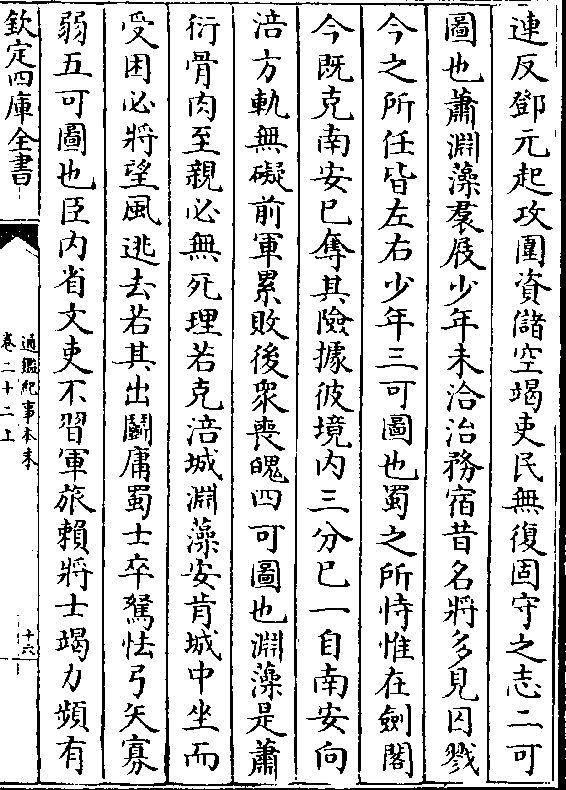 連反鄧元起攻圍資儲空竭吏民無復固守之志二可
圖也蕭淵藻羣屐少年未洽治務宿昔名將多見囚戮
今之所任皆左右少年三可圖也蜀之所恃惟在劍閣
今既克南安已奪其險據彼境内三分已一自南安向
涪方軌無礙前軍累敗後衆喪魄四可圖也淵藻是蕭
衍骨肉至親必無死理若克涪城淵藻安肯城中坐而
受困必將望風逃去若其出鬬庸蜀士卒駑怯弓矢寡
弱五可圖也臣内省文吏不習軍旅賴將士竭力頻有
欽定四庫全書
通鑑紀事本末
卷二十二上
十六